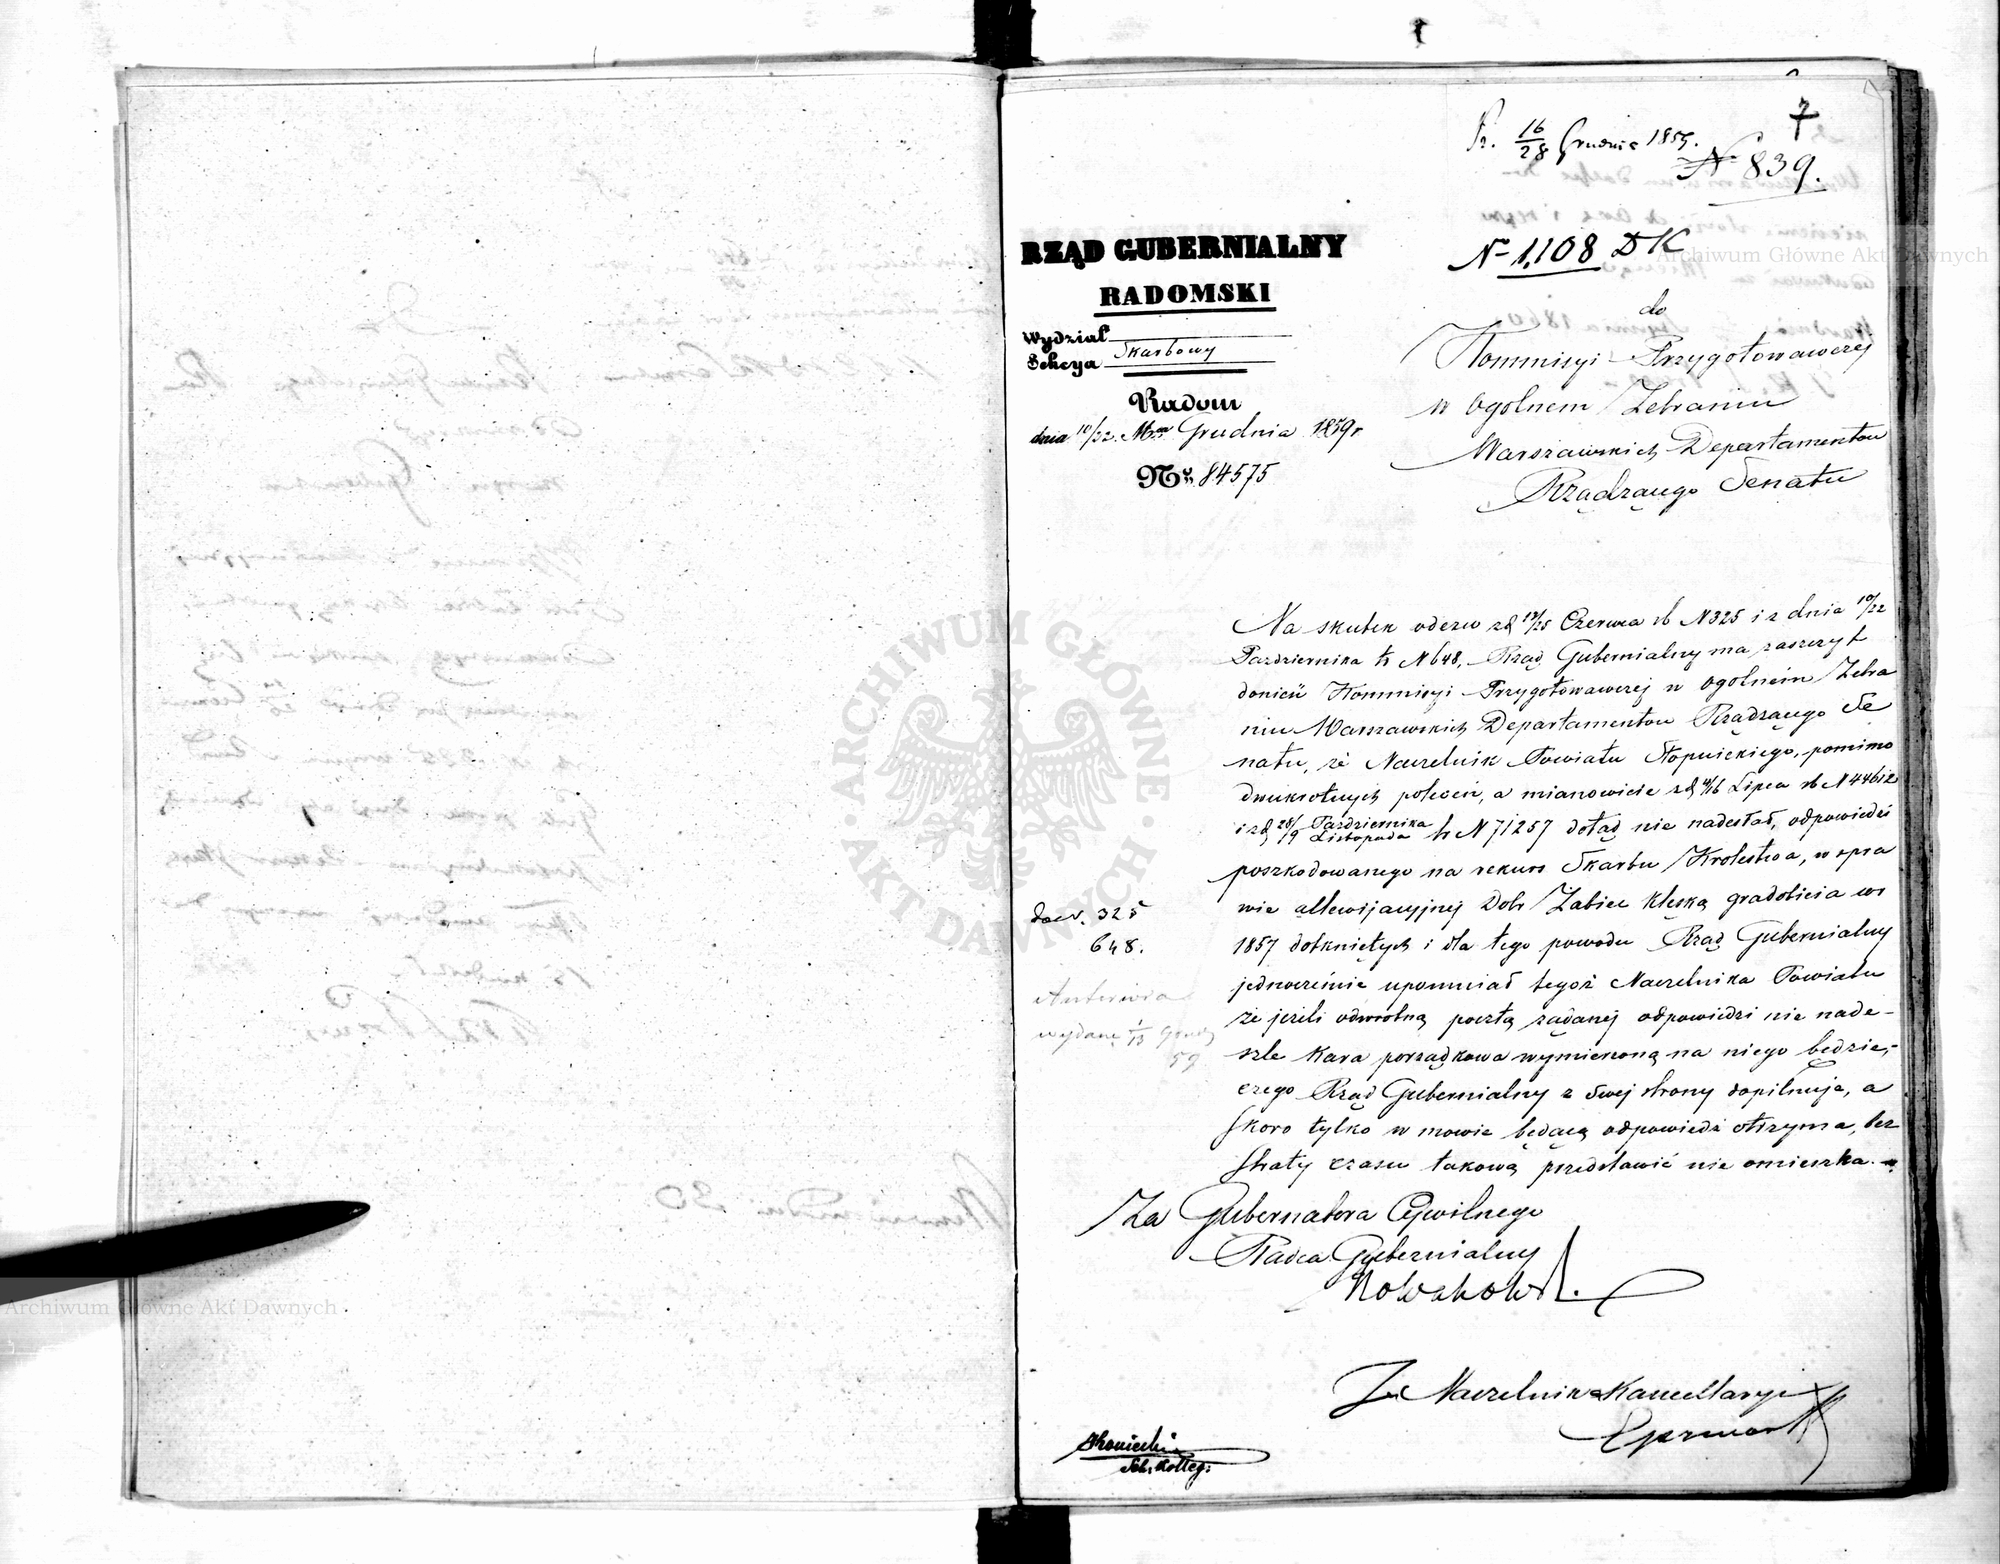 7
Pr. 16/28 Grudnia 1859.
N 839.
RZĄD GUBERNIALNY
RADOMSKI
Wydział
Sekcya Skarbowy
Radom
dnia 10/22 Mca Grudnia 1859 r
Nr. 84575
N 1,108 DK
do
Kommisyi Przygotowawczej
w Ogolnem Zebraniu
Warszawskich Departamentow
Rządzącego Senatu
Na skutek odezw z d 13/25 Czerwca rb N 325 i z dnia 10/22
Pazdziernika tr N 648, Rząd Gubernialny ma zaszczyt
donieść Kommisyi Przygotowawczej w Ogolnem Zebra
niu Warszawskich Departamentow Rządzącego Se
natu, że Naczelnik Powiatu Stopnickiego, pomimo
dwukrotnych poleceń, a mianowicie z d 4/16 Lipca rb N 44612
i z d 28/9 Pazdziernika/Listopada tr N 71257 dotąd nie nadesłał, odpowiedzi
poszkodowanego na rekurs Skarbu Krolestwa, w spra
wie allewijacyjnej Dobr Zabiec klęską gradobicia w r
1857 dotkniętych i dla tego powodu Rząd Gubernialny
jednocześnie upomniał tegoż Naczelnika Powiatu
że jeżeli odwrotną pocztą żądanej odpowiedzi nie nade-
szle kara porządkowa wymierzoną na niego będzie,-
czego Rząd Gubernialny z swej strony dopilnuje, a
skoro tylko w mowie będącą odpowiedź otrzyma, bez
straty czasu takową przedstawić nie omieszka.-
325
648.
wydane
59
Za Gubernatora Cywilnego
Radca Gubernialny
Nowakowski.
Za Naczelnika Kancellaryi
Sek. Kolleg:
ARCHIWUM GŁÓWNE
AKT DAWNYCH
Archiwum Główne Akt Dawnych
Archiwum Główne Akt Dawnych